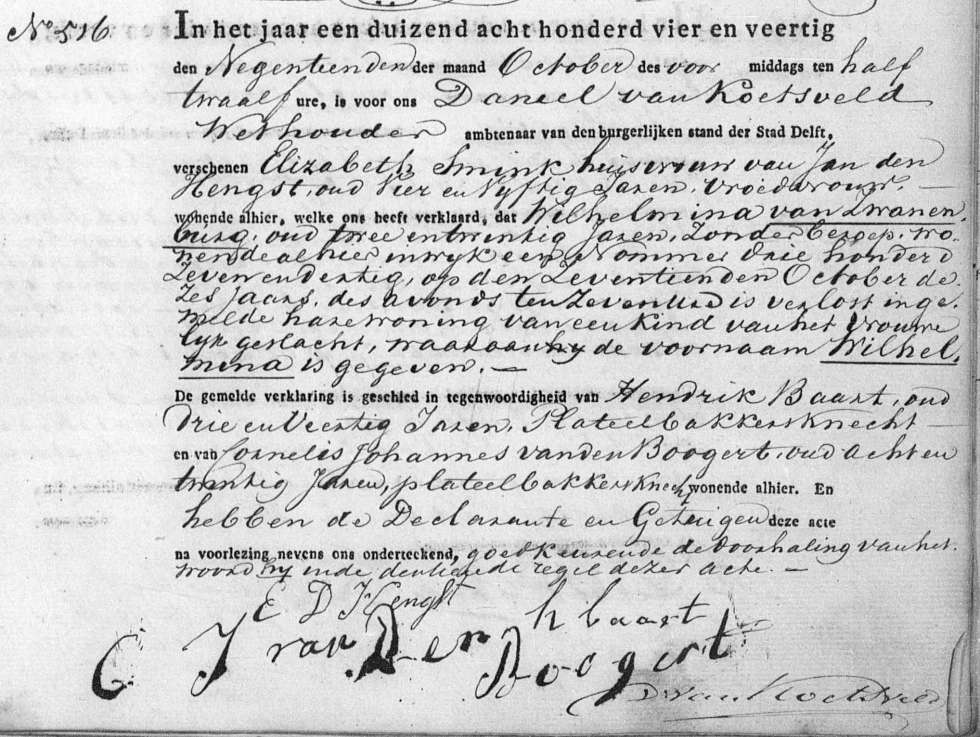 No 516. In het jaar een duizend acht honderd vier en veertig
den Negentienden der maand October des voor middags ten half
twaalf ure, is voor ons Daniel van Koetsveld
Wethouder ambtenaar van den burgerlijken stand der Stad Delft,
verschenen Elizabeth Smink huisvrouw van Jan den
Hengst, oud Vier en Vyftig Jaren, vroedvrouw. —
wonende alhier, welke ons heeft verklaard, dat Wilhelmina van Zwanen,
burg, oud twee en twintig Jaren, Zonder beroep, wo,
nende alhier in wyk een Nommer drie honderd
Zeven en dertig, op den Zeventienden October de,
zes Jaars, des avonds ten Zeven ure is verlost in ge,
melde hare woning van een Kind van het vrouwe
lyk geslacht, waaraan hy de voornaam Wilhel,
mina is gegeven. —
De gemelde verklaring is geschied in tegenwoordigheid van Hendrik Baart, oud
Drie en Veertig Jaren, Plateelbakkersknecht —
en van Cornelis Johannes van den Boogert, oud acht en
twintig Jaren, plateelbakkersknecht wonende alhier. En
hebben de Declarante en Getuigen deze acte
na voorlezing nevens ons onderteekend, goedkeurende de doorhaling van het
woord hy in de dertiende regel dezer acte. —
E D Hengst
h baart
C J van Den Boogert
D van Koetsveld